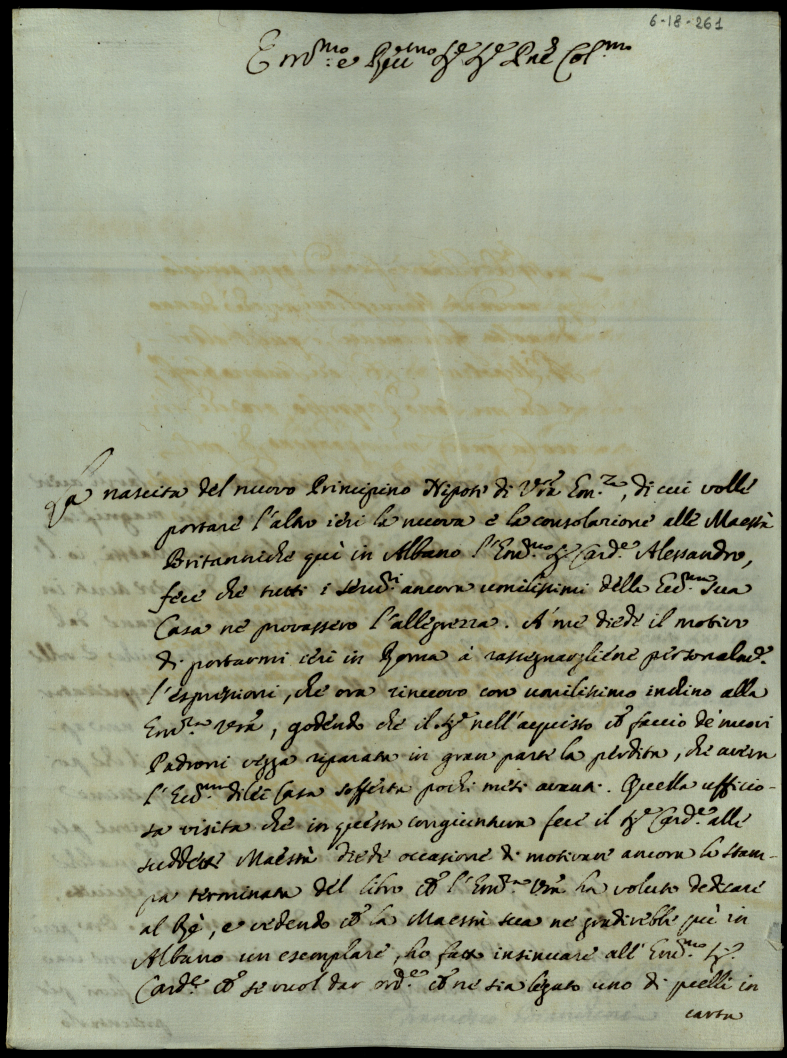 6-18-261
Em.mo e Re.mo Sig.e Sig.e Pne Col.mo
La nascita del nuovo Principino Nipote di Vra Em.za, di cui volle
portare l'altro ieri la nuova e la consolazione alle Maestà
Britanniche quì in Albano l'Em.mo Sig.e Card.e Alessandro,
fece che tutti i serv.ri ancora umilissimi della Ecc.ma sua
Casa ne provassero l'allegrezza. A' me diede il motivo
di portarmi ieri in Roma à rassegnargliene personalm.e
l'espressioni, che ora rinuovo con umilissimo inchino alla
Em.za Vra, godendo che il Sig.e nell'acquisto ch' faccio de' nuovi
Padroni vegga riparata in gran parte la perdita, che aveva
l'Ecc.ma di lei Casa sofferta pochi mesi avanti. Quella ufficio-
sa visita che in questa congiuntura fece il Sig.e Card.e alle
suddette Maestà diede occasione di motivare ancora la stam-
pa terminata del libro ch' l'Em.za Vra ha voluto dedicare
al Rè, e vedendo ch' la Maestà sua ne gradirebbe quì in
Albano un esemplare, ho fatto insinuare all' Em.mo Sig.
Card.e ch' se vuol dar ord.e ch' ne sia legato uno di quelli in
carta